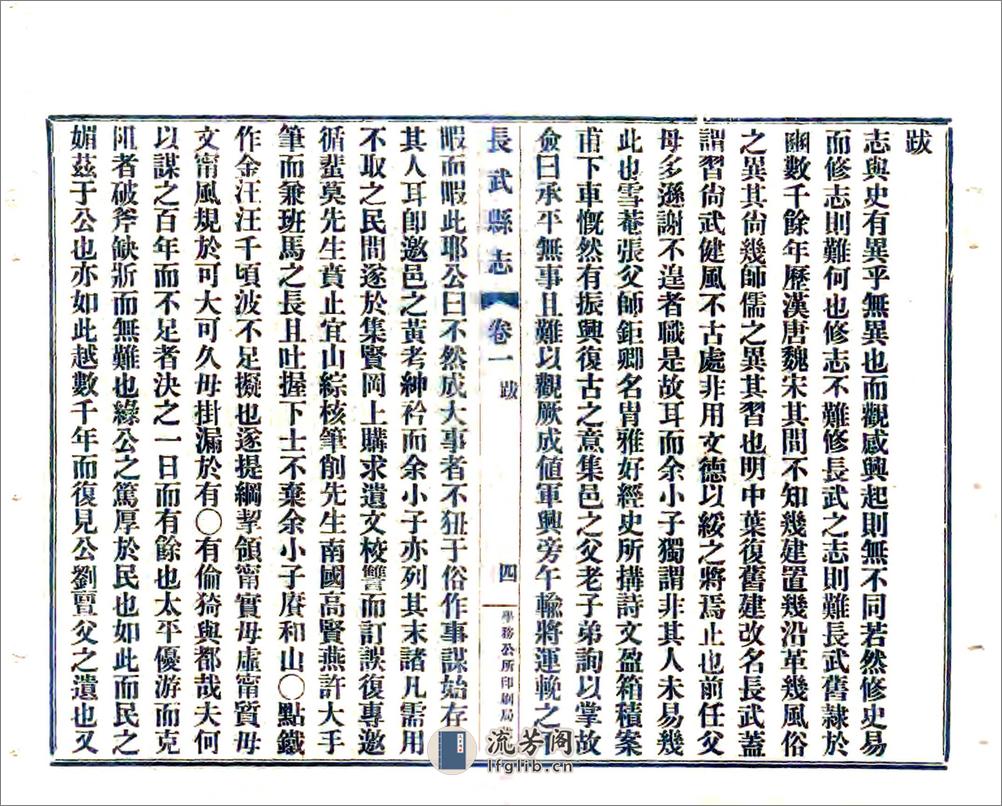 跋
志與史有異乎無異也而觀感興起則無不同若然修史易
而修志則難何也修志不難修長武之志則難長武舊隷於
豳數千餘年歷漢唐魏宋其間不知幾建置幾沿革幾風俗
之異其尙幾師儒之異其習也明中葉復舊建改名長武蓋
謂習尙武健風不古處非用文德以綏之將焉止也前任父
母多遜謝不遑者職是故耳而余小子獨謂非其人未易幾
此也雪菴張父師鉅卿名胄雅好經史所搆詩文盈箱積案
甫下車慨然有振興復古之意集邑之父老子弟詢以掌故
僉曰承平無事且難以觀厥成値軍興旁午輸將運輓之
長武縣志 卷一 跋 四 學務公所印刷局
暇而暇此耶公曰不然成大事者不狃于俗作事謀始存
其人耳卽邀邑之黃考紳衿而余小子亦列其末諸凡需用
不取之民間遂於集賢岡上購求遺文校讐而訂誤復專邀
循蜚莫先生賁止宜山綜核筆削先生南國高賢燕許大手
筆而兼班馬之長且吐握下士不棄余小子賡和山〇點鐵
作金汪汪千頃波不足擬也遂提綱挈領甯實毋虛甯質毋
文甯風規於可大可久毋掛漏於有〇有倫猗與都哉夫何
以謀之百年而不足者決之一日而有餘也太平優游而克
阻者破斧缺斨而無難也緣公之篤厚於民也如此而民之
媚茲于公也亦如此越數千年而復見公劉亶父之遺也又
流芳阁
lfglib.cn